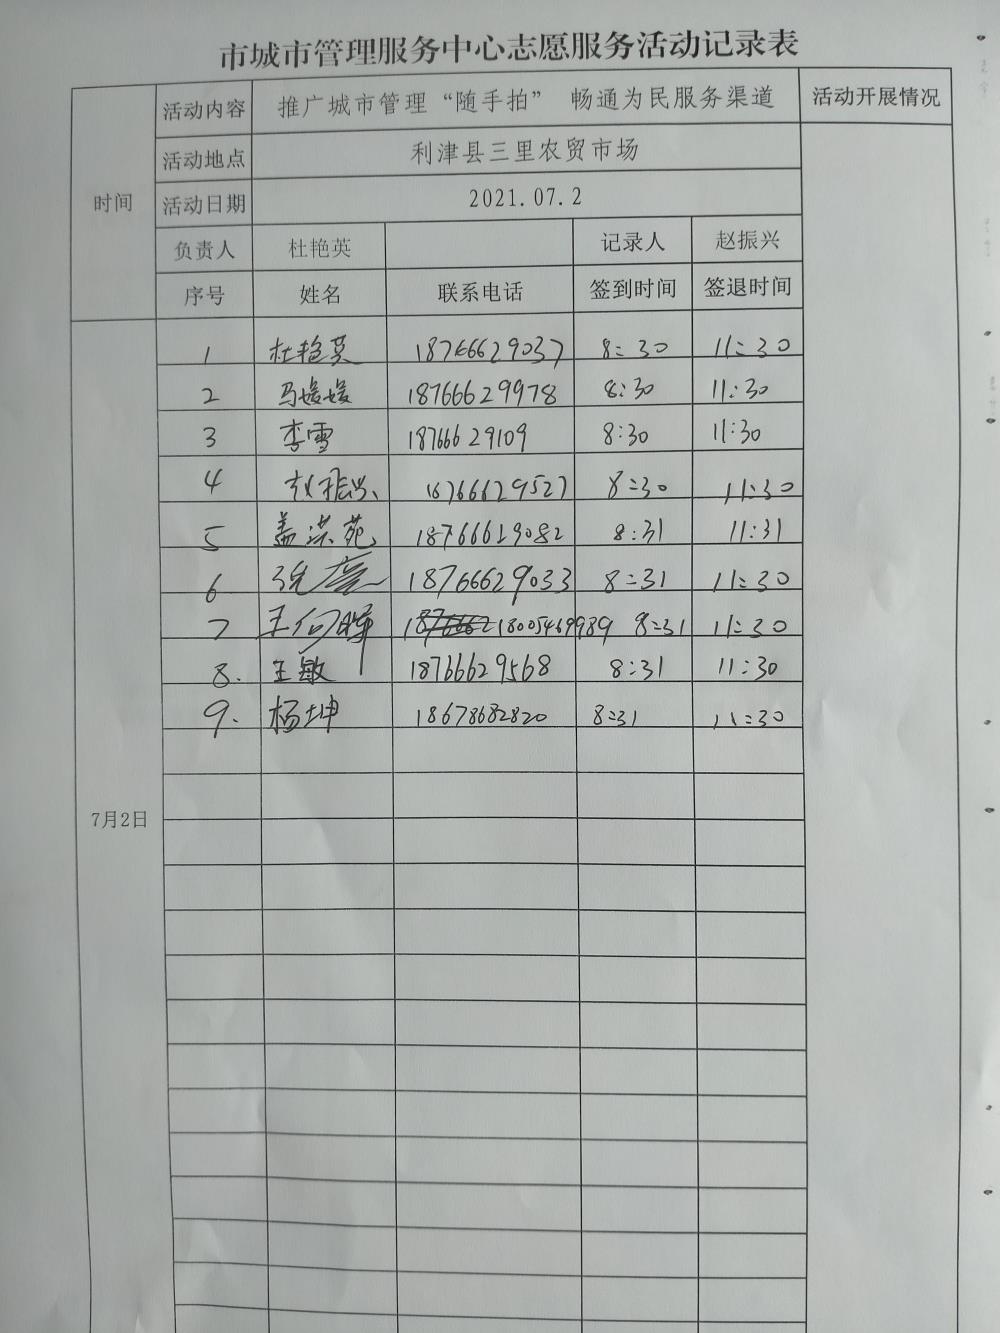 市城市管理服务中心志愿服务活动记录表
时间 活动内容 推广城市管理“随手拍” 畅通为民服务渠道 活动开展情况
活动地点 利津县三里农贸市场
活动日期 2021.07.2
负责人 杜艳英 记录人 赵振兴
序号 姓名 联系电话 签到时间 签退时间
7月2日
1 杜艳英 18766629037 8:30 11:30
2 马媛媛 18766629978 8:30 11:30
3 李雪 18766629109 8:30 11:30
4 赵振兴 18766629527 8:30 11:30
5 盖洪苑 18766629082 8:31 11:31
6 张 18766629033 8:31 11:30
7 王向晖 18005469989 8:31 11:30
8. 王敏 18766629568 8:31 11:30
9. 杨坤 18678682820 8:31 11:30